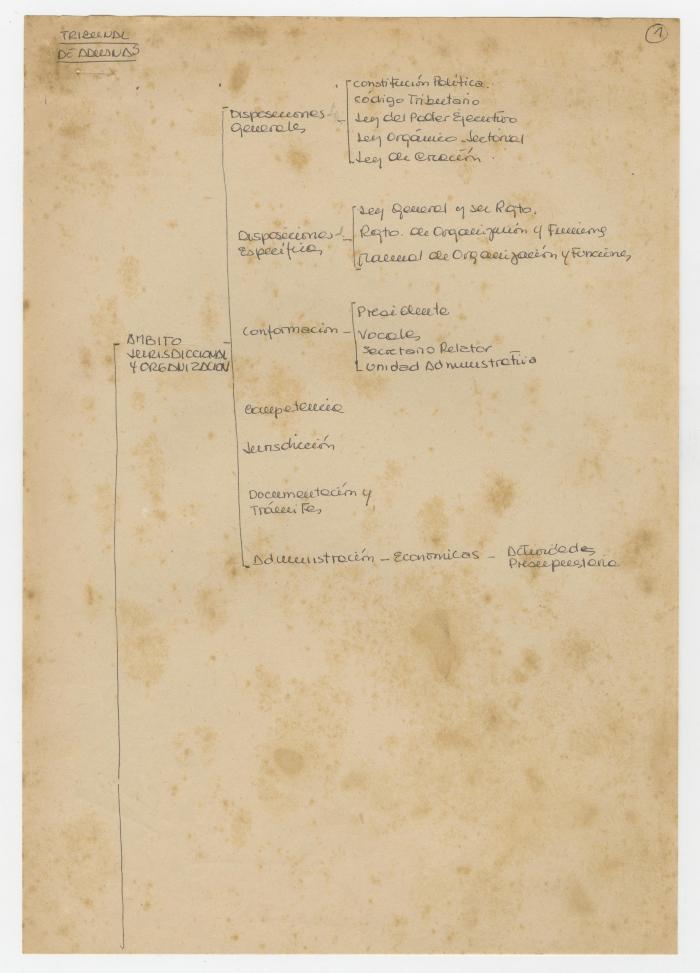 TRIBUNAL
DE ADUANAS
1
Disposiciones
Generales
Constitución Política.
Código Tributario
Ley del Poder Ejecutivo
Ley Orgánica Sectorial
Ley de Creación.
Disposiciones
Específicas
Ley General y su Rgto.
Rgto. de Organización y Funciones
Manual de Organización y Funciones
Conformación
Presidente
Vocales
Secretario Relator
Unidad Administrativa
AMBITO
JURISDICCIONAL
Y ORGANIZACION
Competencia
Jurisdicción
Documentación y
Trámites
Administración - Económicas - Actividades
Presupuestaria